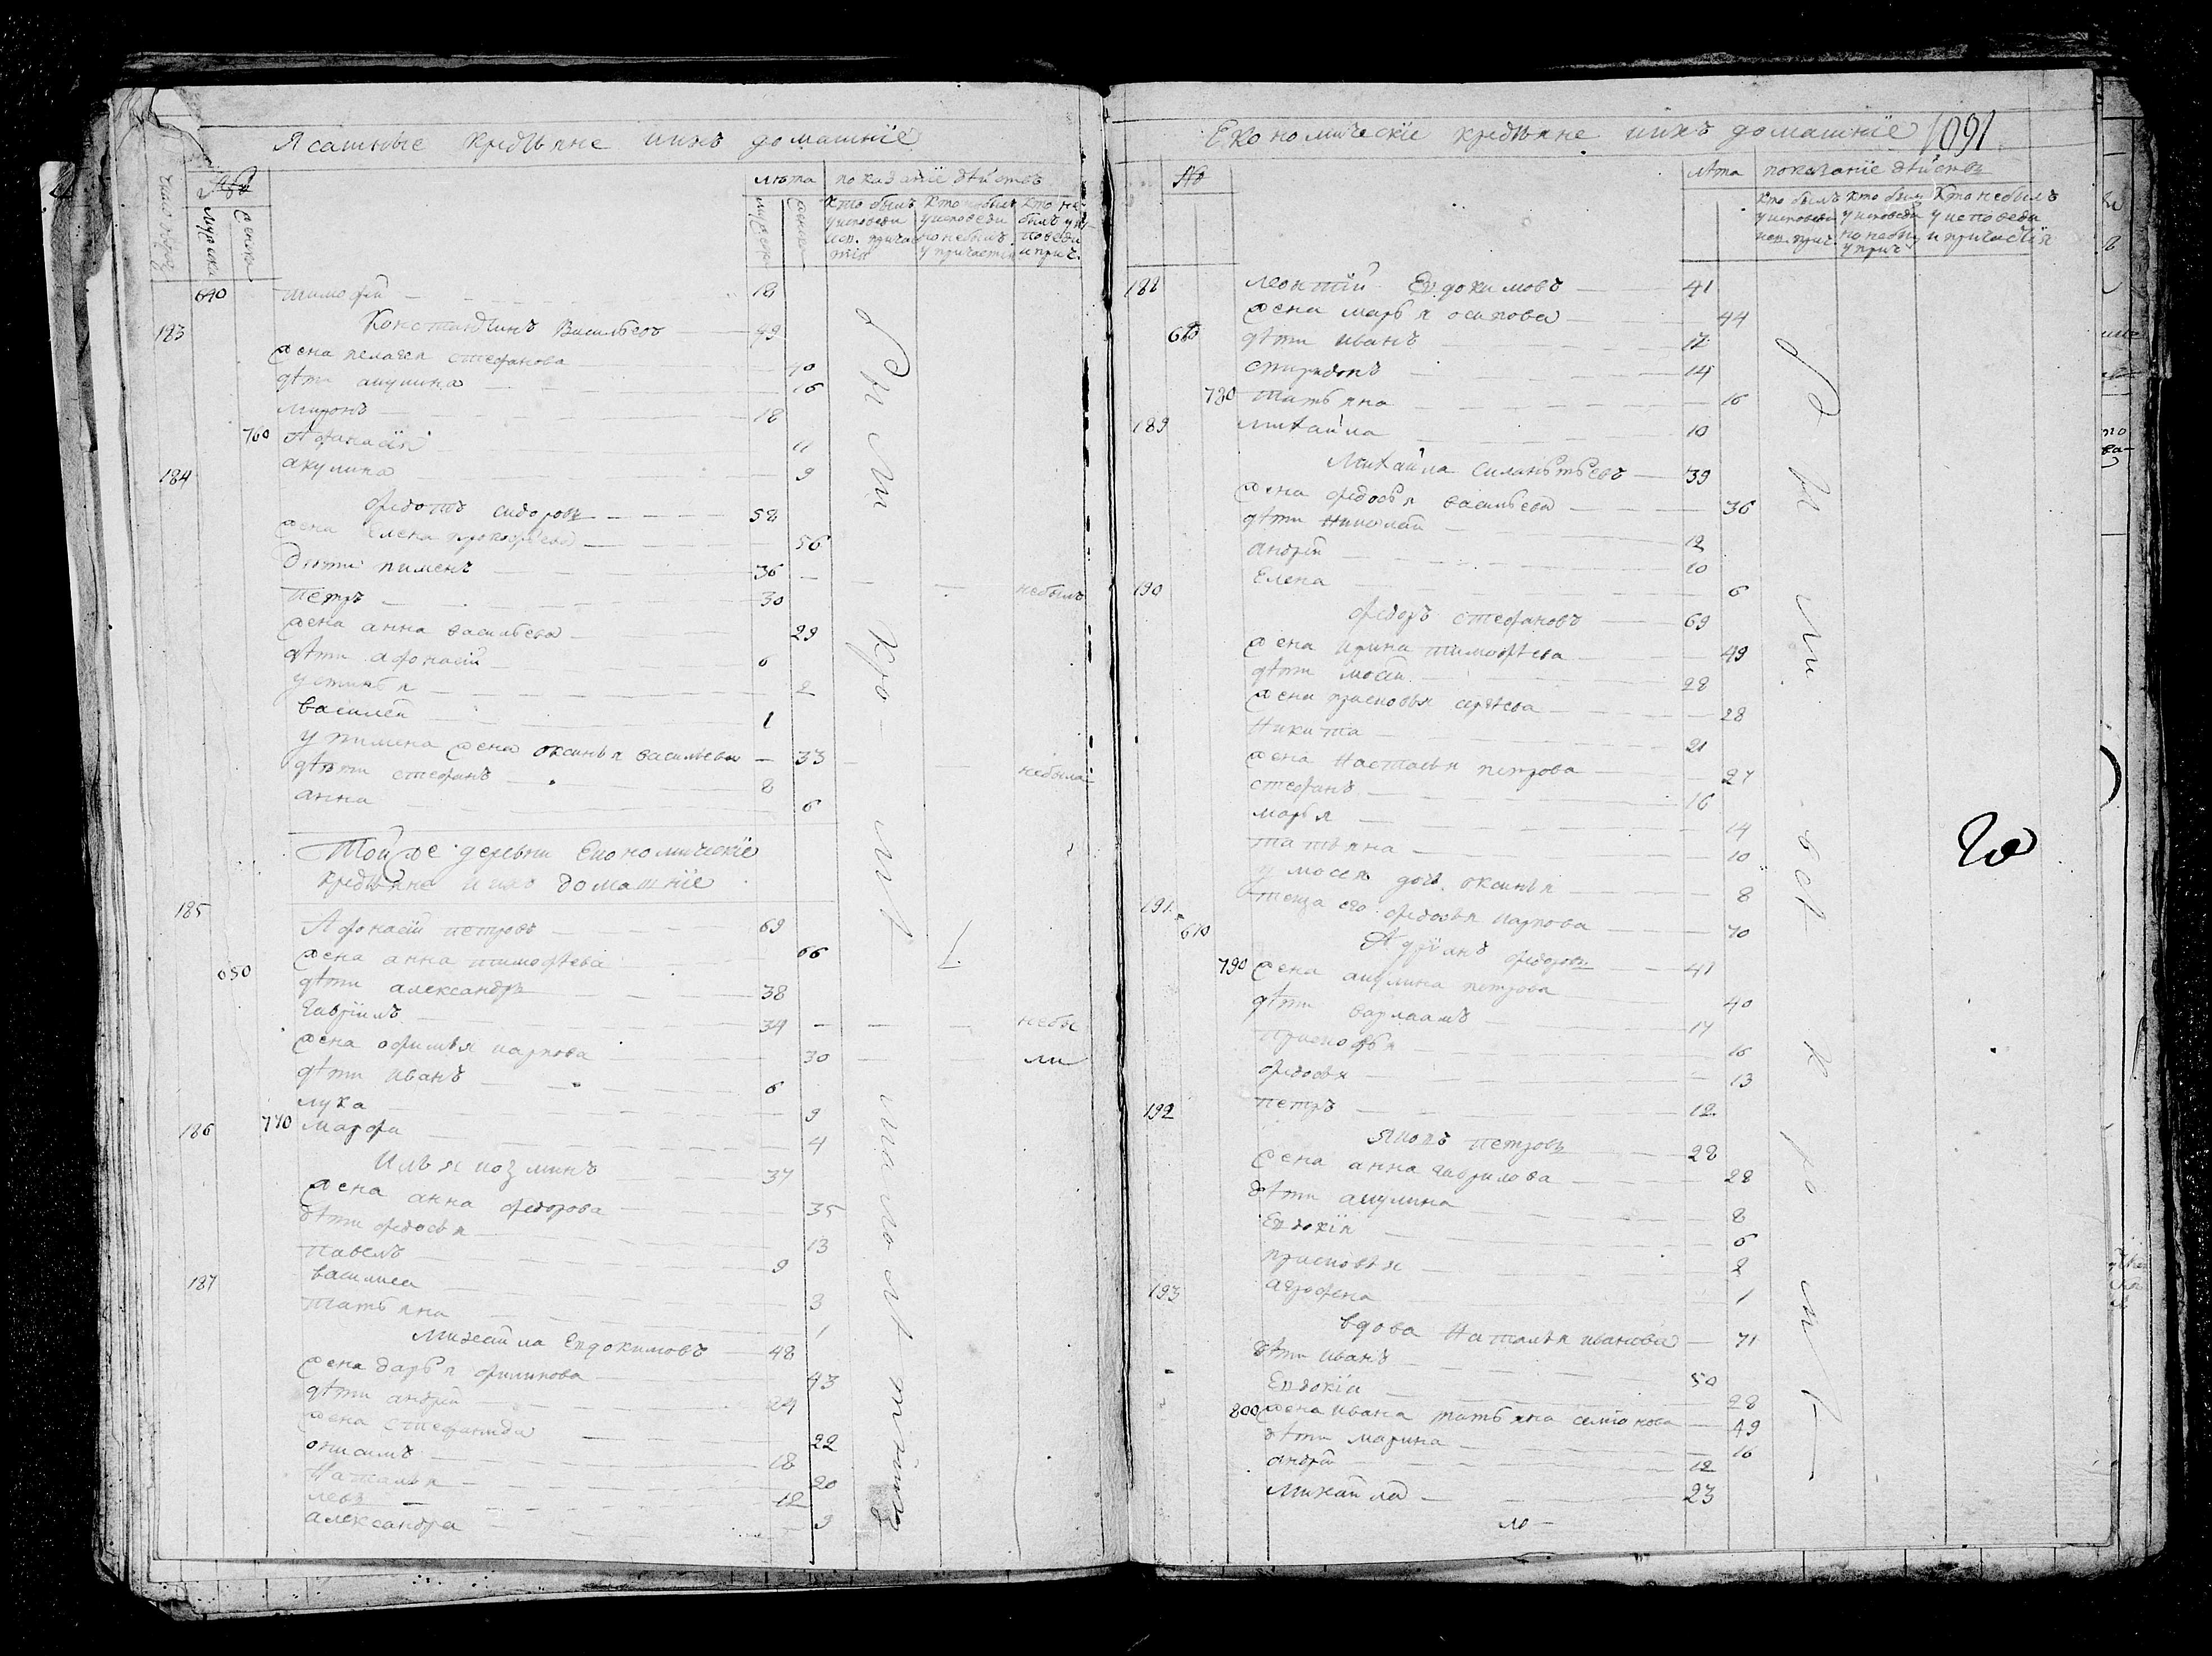 Ясашные крестьяне и ихъ домашнїе
Число дворовъ
№
Мужска
Женска
лѣта
показанїе дѣйствъ
мужска
женска
Кто былъ у исповѣди и св. причастїя
Кто былъ у исповѣди но небылъ у причастїя
Кто не былъ у исповѣди и прич.
640 тимофѣй 18
183 Констянтинъ Васильевъ 49
жена пелагея стефанова 40
дѣти акулина 16
миронъ 18
760 Афанасїя 11
акулина 9
184
Федотъ сидоровъ 58
жена елена прокофьева 56
дѣти пименъ 36 небылъ
петръ 30
жена анна васильева 29
дѣти афонасїй 6
устинья 2
василей 1
у пимена жена оксинья васильева 33 небыла
дѣти стефанъ 8
анна 6
Той же деревни Економическїе
крестьяне и ихъ домашнїе
185
Афонасїй петровъ 69
жена анна тимофѣева 66
650 дѣти александръ 38
гаврїилъ 34 небы
жена офимья карпова 30 ли
дѣти иванъ 6
лука 9
770 марфа 4
186
Илья козминъ 37
жена анна федорова 35
дѣти федосья 13
павелъ 9
василиса 3
187
татьяна 1
михайла Евдокимовъ 48
жена дарья филипова 43
дѣти андрей 24
жена стефанида 22
онисимъ 18
Наталья 20
левъ 12
александра 9
Економическїе крестьяне и ихъ домашнїе 1091
№
лѣта
показанїе дѣйствъ
Кто былъ у исповѣди и св. прич.
Кто былъ у исповѣди но небылъ у прич.
Кто небылъ у исповѣди и причастїя
188 леонтїй Евдокимовъ 41
жена марья осипова 44
660 дѣти иванъ 17
спиридонъ 14
780 татьяна 16
189 михайла 10
Михайла силантьевъ 39
жена федосья васильева 36
дѣти николай 12
андрей 10
190 Елена 6
федоръ стефановъ 69
жена ирина тимофѣева 49
дѣти мосей 28
жена прасковья сергѣева 28
никита 21
жена настасья петрова 27
стефанъ 16
марья 14
татьяна 10
у мосея дочь оксинья 8
191 теща его федосья карпова 70
670 Адрїанъ федоровъ 41
790 жена акулина петрова 40
дѣти варлаамъ 17
прасковья 16
федосья 13
192 петръ 12
яковъ петровъ 28
жена анна гаврилова 28
дѣти акулина 8
Евдокїя 6
прасковья 2
193 агрофена 1
вдова Наталья иванова 71
дѣти иванъ 50
Евдокїя 28
800 жена ивана татьяна семїонова 49
дѣти марина 16
андрей 12
Михайла 23